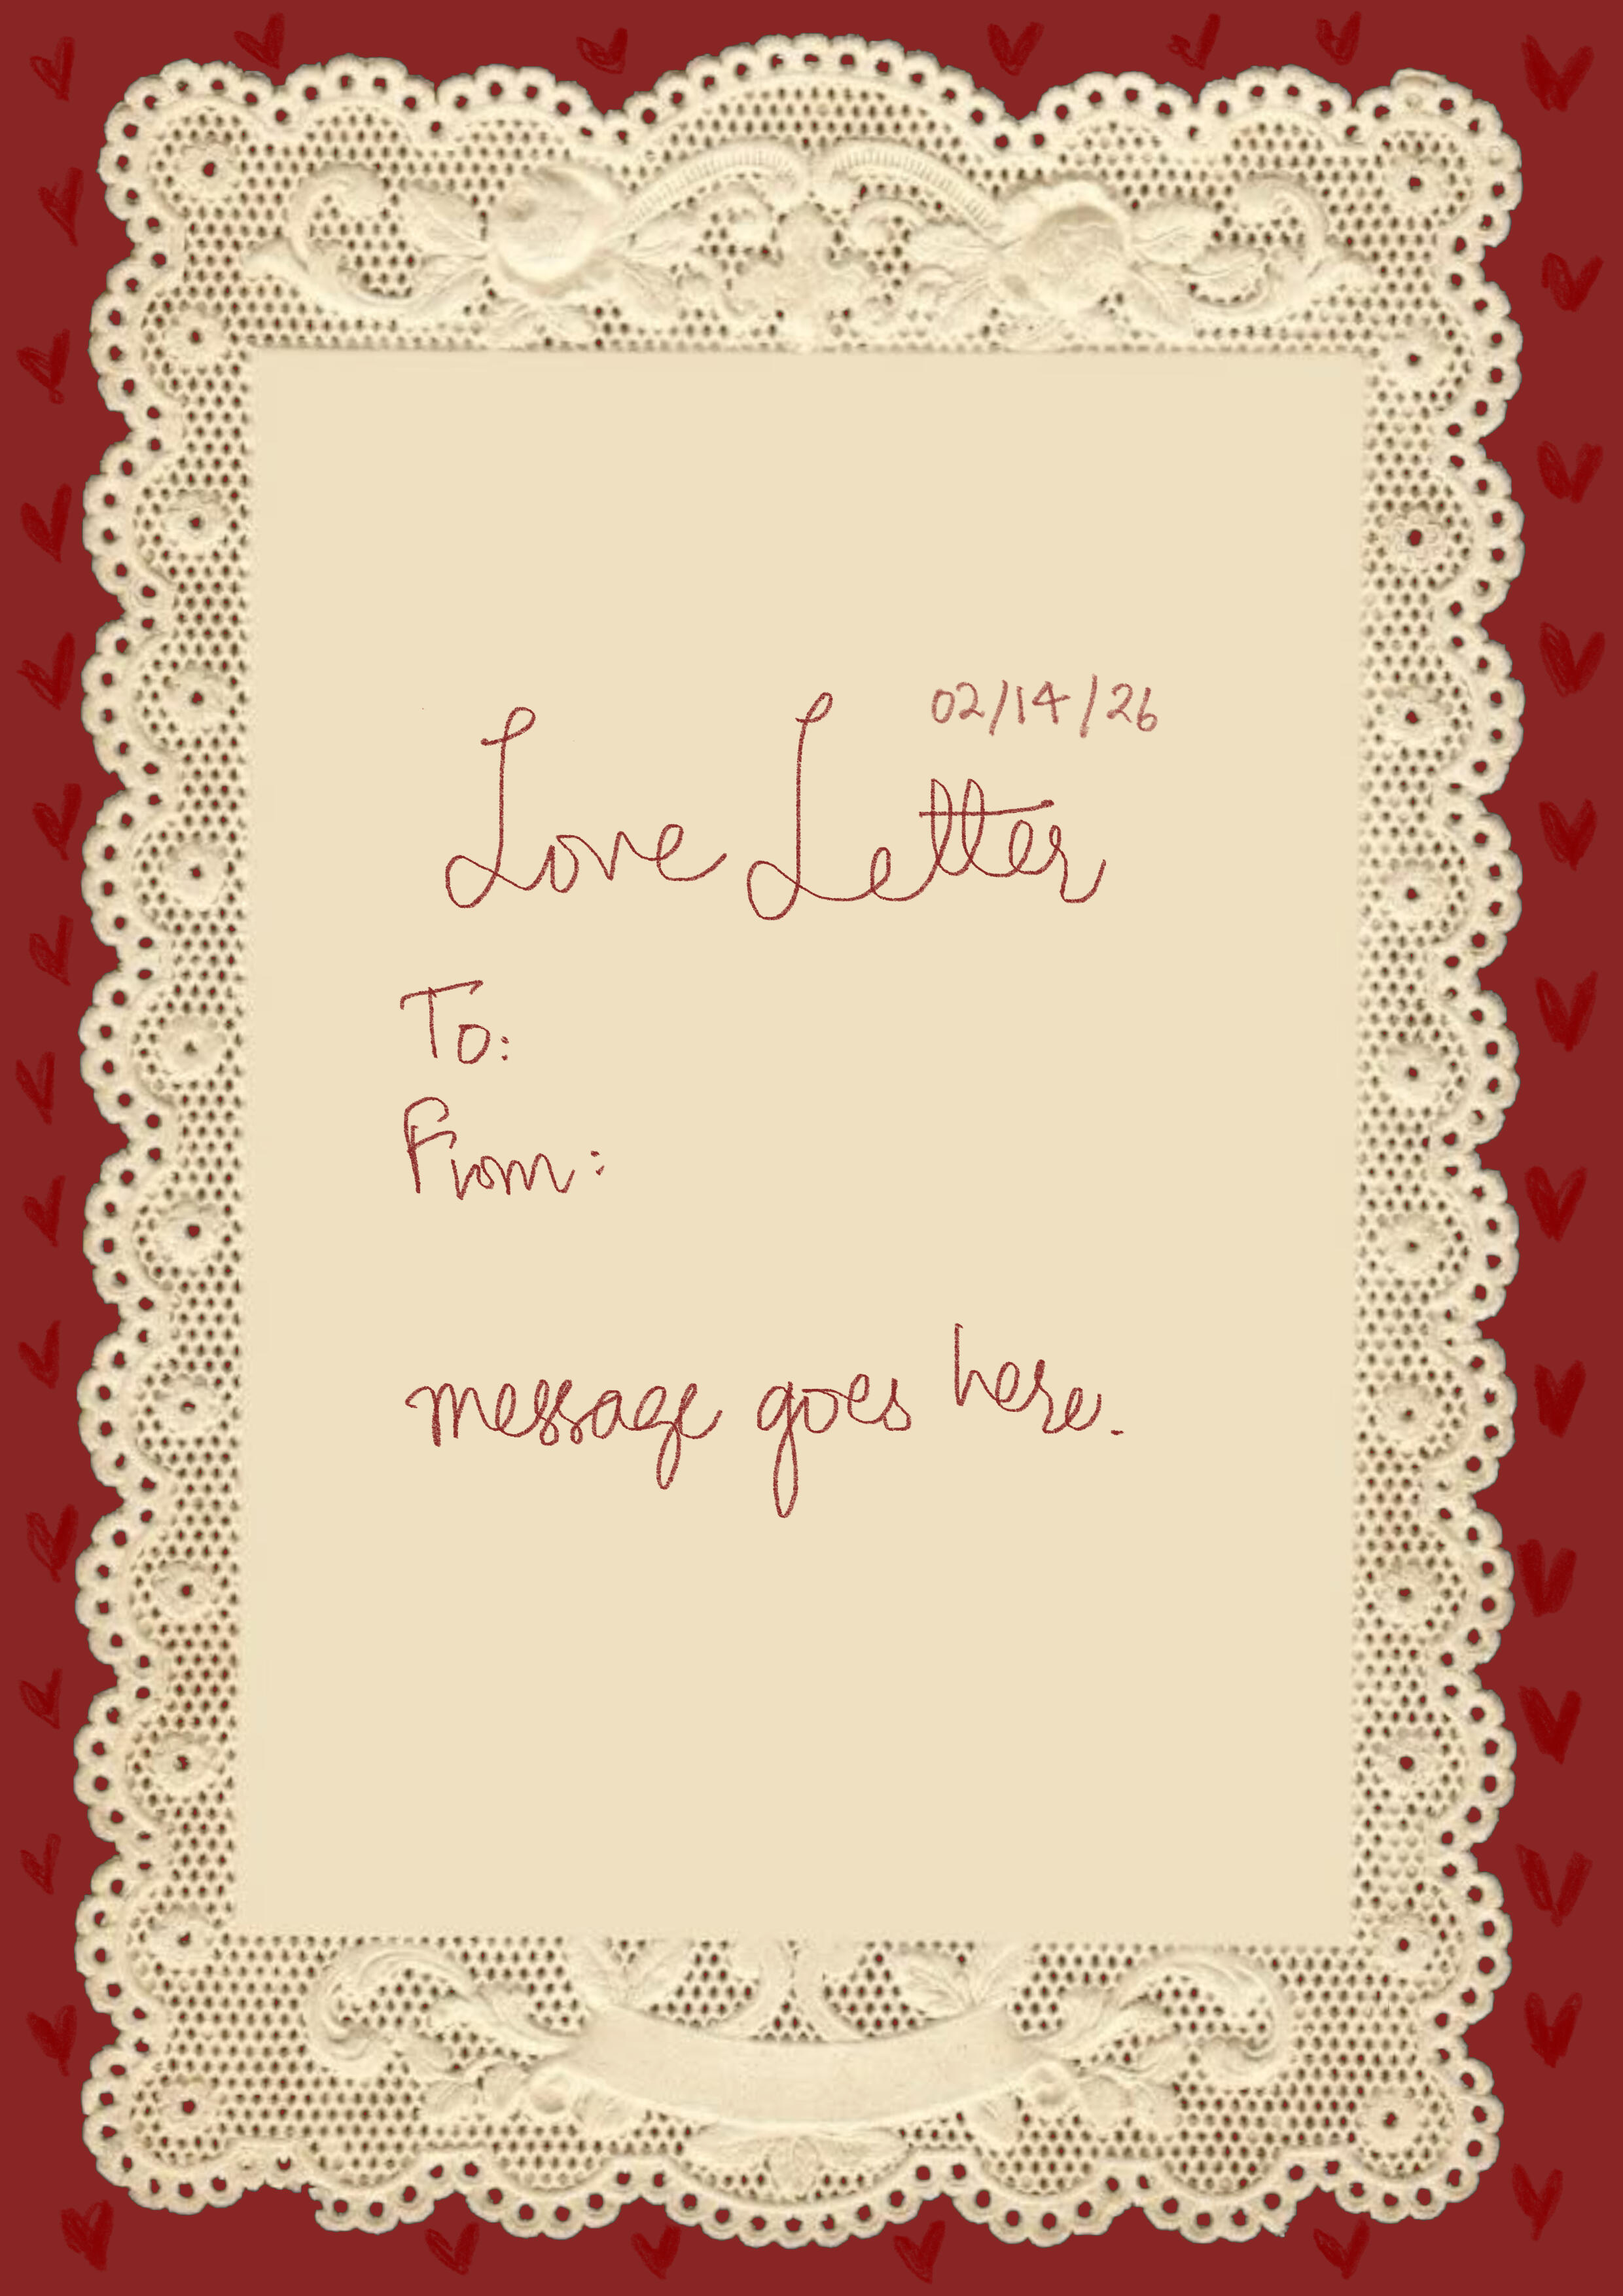 02/14/26
Love Letter
To:
From:
message goes here.